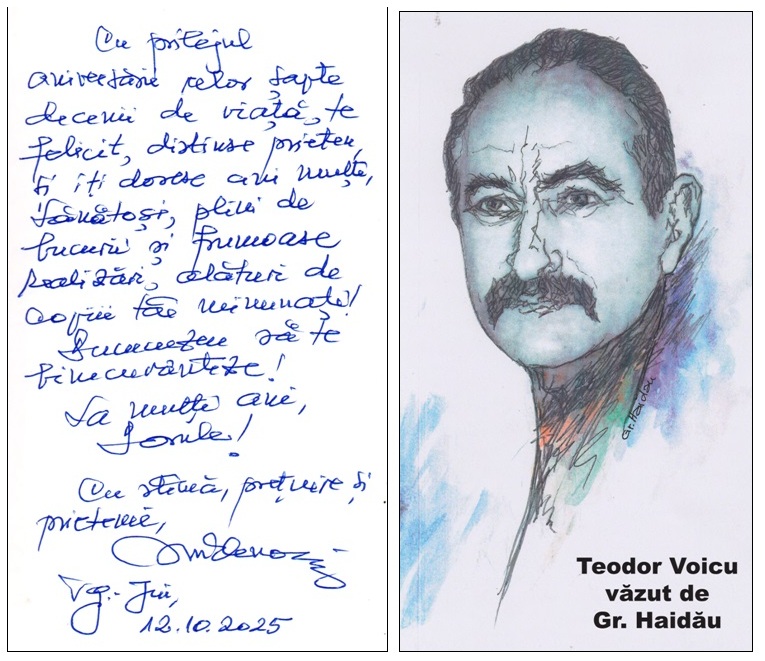 Cu prilejul
aniversării celor șapte
decenii de viață, te
felicit, distinse prieten,
și îți doresc ani mulți,
sănătoși, plini de
bucurii și frumoase
realizări, alături de
copiii tăi minunați!
Dumnezeu să te
binecuvânteze!
La mulți ani,
Dorule!
Cu stimă, prețuire și
prietenie,
Tg.-Jiu,
12.10.2025
Gr. Haidău
Teodor Voicu
văzut de
Gr. Haidău